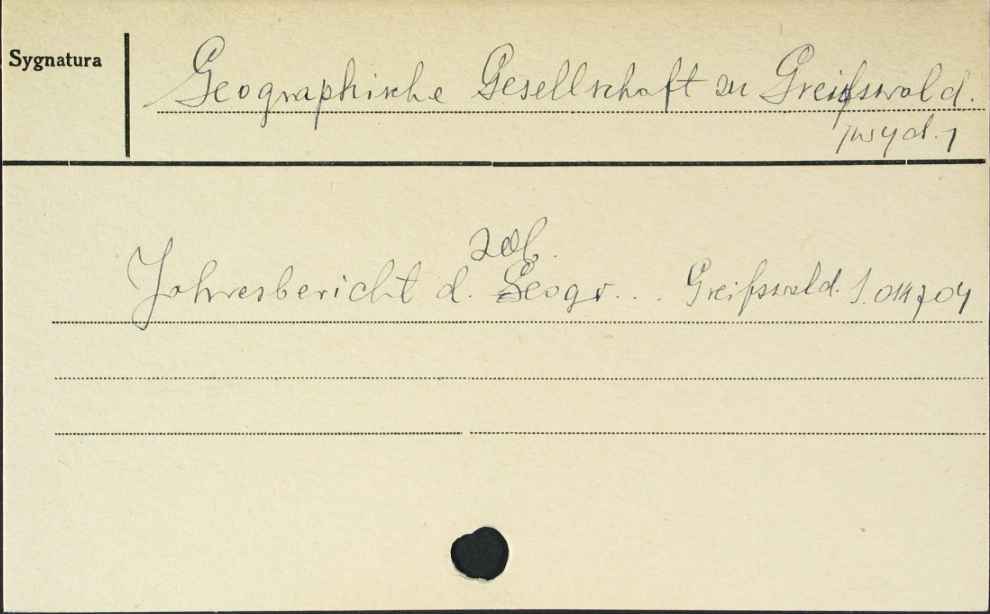 Sygnatura
Geographische Gesellschaft zu Greifswald.
wyd. 1
zob.
Jahresbericht d. Geogr... Greifswald.